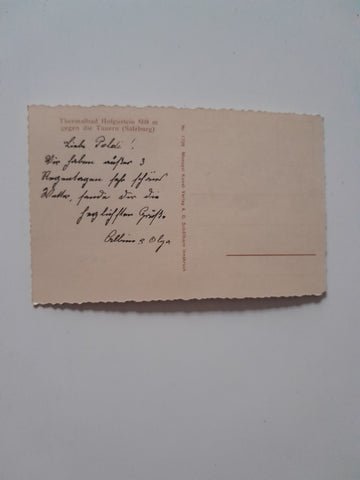 Thermalbad Hofgastein 868 m
gegen die Tauern (Salzburg)
Liebe Poldi!
Wir haben außer 3
Regentagen sehr schönes
Wetter, sende Dir die
herzlichsten Grüße
Olga